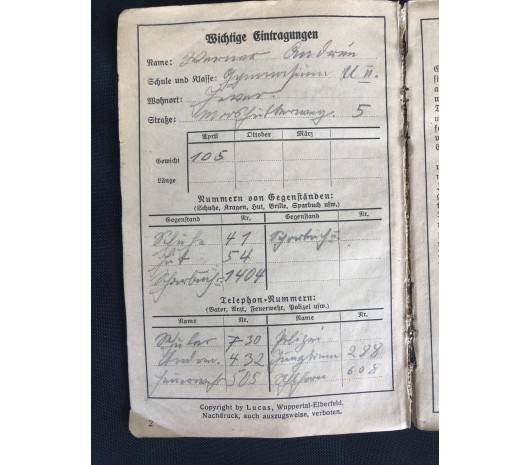 Wichtige Eintragungen
Name: Werner Andrée
Schule und Klasse: Gymnasium U II.
Wohnort: Jever.
Straße: 5
April Oktober März
Gewicht 105
Länge
Nummern von Gegenständen:
(Schuhe, Kragen, Hut, Brille, Sparbuch usw.)
Gegenstand Nr. Gegenstand Nr.
Schuhe 41
Hut 54
1404
Telephon-Nummern:
(Vater, Arzt, Feuerwehr, Polizei usw.)
Name Nr. Name Nr.
730 Polizei
Andrée 432 288
Feuerwehr 505 608
Copyright by Lucas, Wuppertal-Elberfeld.
Nachdruck, auch auszugsweise, verboten.
2